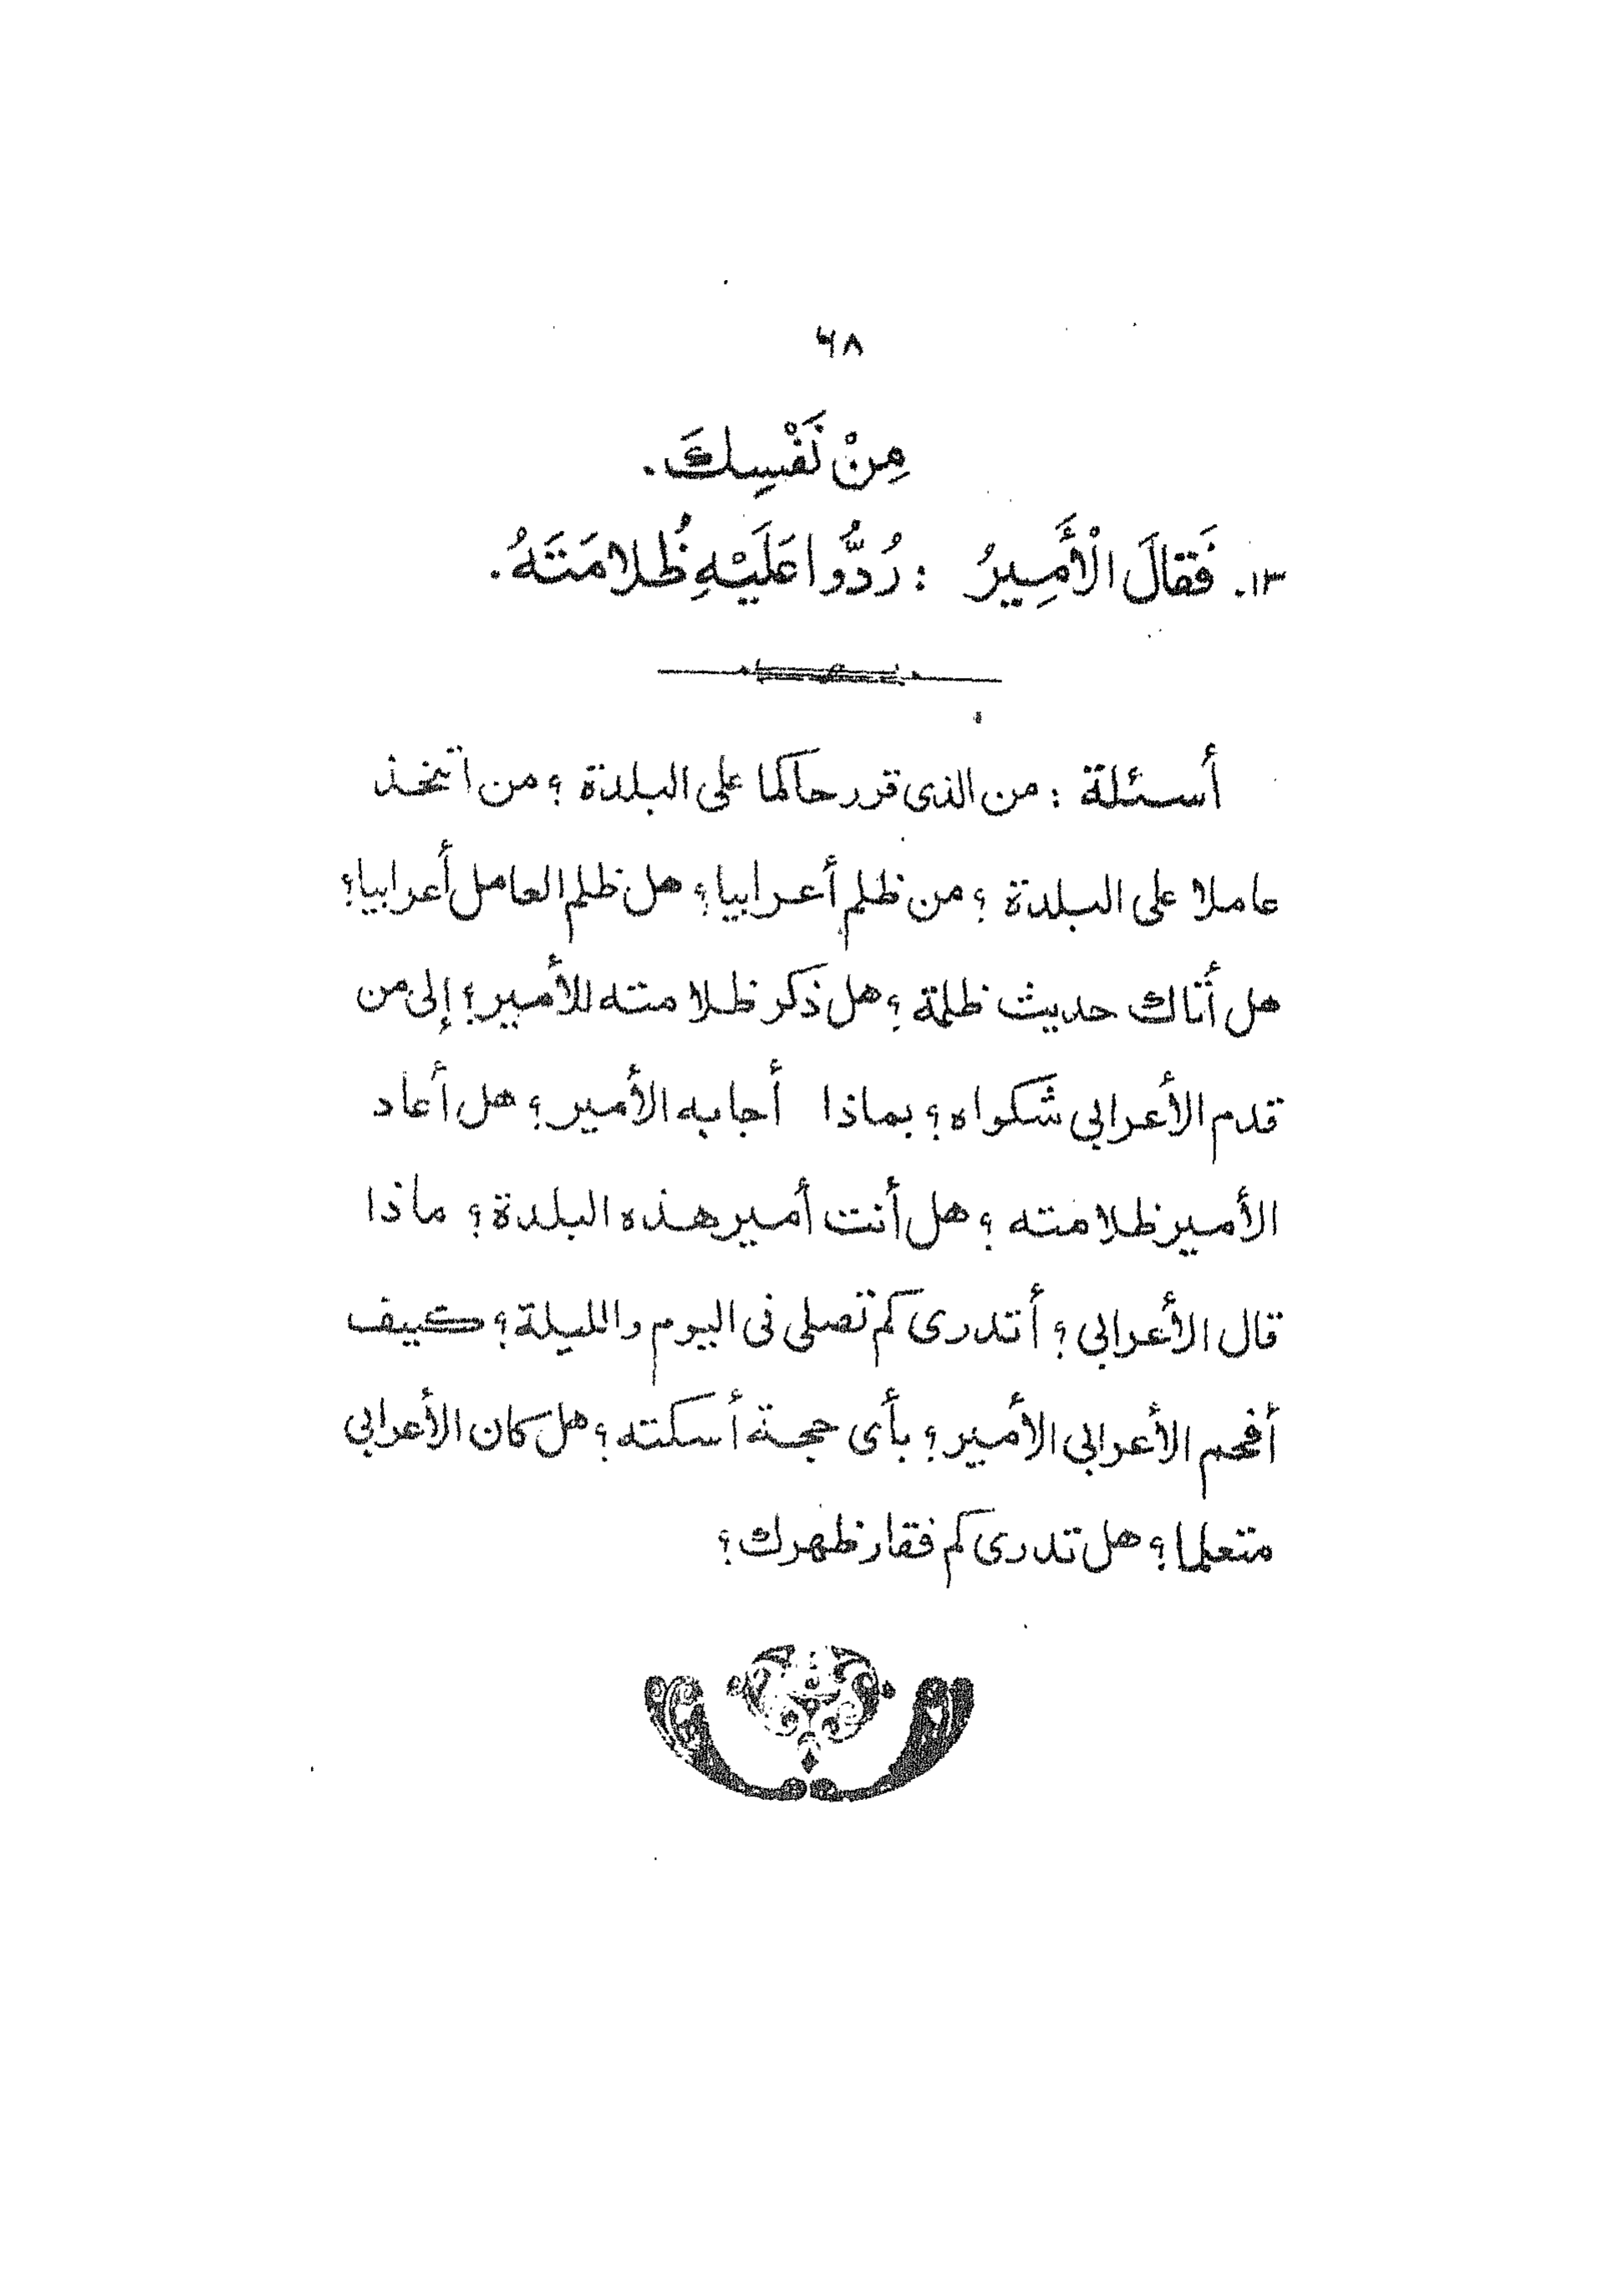 ٦٨
مِنْ نَفْسِكَ.
١٣. فَقَالَ الْأَمِيرُ : رُدُّوا عَلَيْهِ ظُلامَتَهُ.
أسئلة : من الذى قرر حاكما على البلدة ؟ من اتخذ
عاملا على البلدة ؟ من ظلم أعرابيا؟ هل ظلم العامل أعرابيا؟
هل أتاك حديث ظلمة ؟ هل ذكر ظلامته للأمير؟ إلى من
قدم الأعرابي شكواه؟ بماذا أجابه الأمير؟ هل أعاد
الأمير ظلامته ؟ هل أنت أمير هذه البلدة؟ ماذا
قال الأعرابي ؟ أتدرى كم تصلى فى اليوم والليلة؟ كيف
أفحم الأعرابي الأمير؟ بأى حجة أسكته؟ هل كان الأعرابي
متعلما؟ هل تدرى كم فقار ظهرك؟